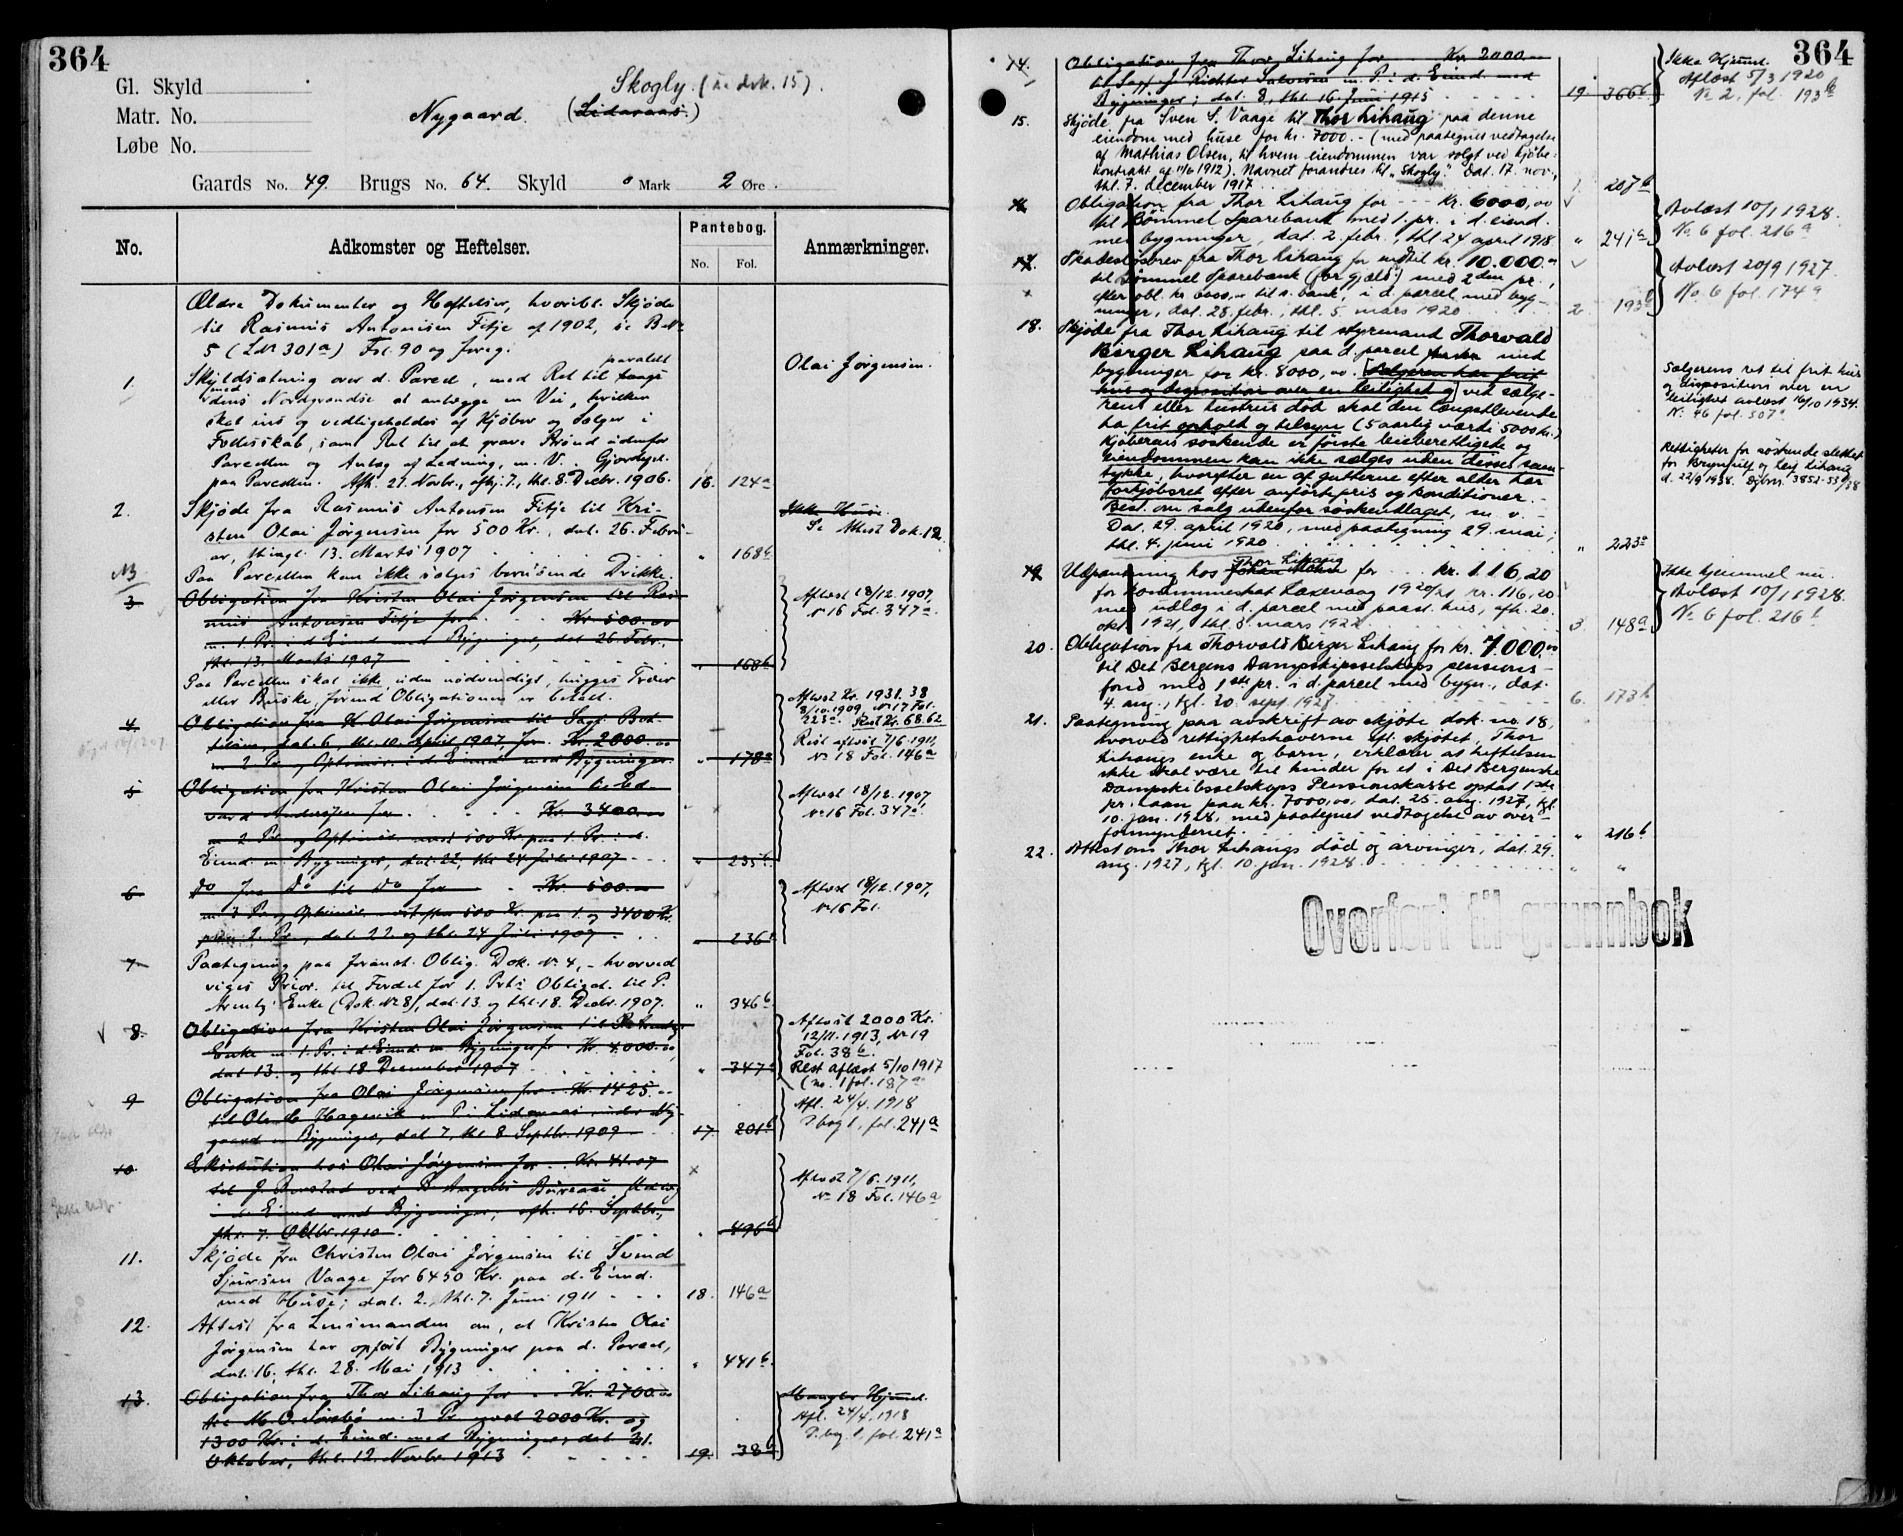 364
Gl. Skyld
Matr. No.
Løbe No.
Skogly. (se dok. 15).
Nygaard. (Lidaraas.)
Gaards No. 49. Brugs No. 64. Skyld 0 Mark 2 Øre.
No. Adkomster og Heftelser. Pantebog. No. Fol. Anmærkninger.
Ældre Dokumenter og Heftelser, hvoribl. Skjøde
til Rasmus Antonisen Fitje af 1902, se B. No
5 (LNr 301a) Fol. 90 og foreg.
1. Skyldsætning over d. Parcel, med Ret til langs Olai Jørgensen.
parallelt med
dens Nordgrændse at anlægge en Vei, hvilken
skal ins og vedligeholdes af Kjøber og Sælger i
Fællesskab, samt Ret til at grave Brønd udenfor
Parcellen og Anlæg af Ledning, m. V. Gjordsgd.
paa Parcellen. Afh. 21. Novbr., afhj. 7., thl. 8. Decbr. 1906. 16. 124a
2. Skjøde fra Rasmus Antonsen Fitje til Kri-
sten Olai Jørgensen for 500 Kr., dat. 26. Febru-
ar, thingl. 13. Marts 1907 " 168b
Ikke Huse.
Se Attest Dok. 12.
NB Paa Parcellen kan ikke sælges berusende Drikke.
3 Obligation fra Kristen Olai Jørgensen til Ras-
mus Antonsen Fitje for Kr. 500.00
m. 1. Pr. i d. Eiend. med Bygninger, dat. 26. Febr.,
thl. 13. Marts 1907 " 168b
Aflæst 18/12.1907,
No 16 Fol. 347a.
Paa Parcellen skal ikke uden nødvendigt, hugges Træer
eller Buske, førend Obligationen er betalt.
4 Obligation fra K. Olai Jørgensen til Sagf. Bet-
, dat. 6., thl. 10. April 1907, for Kr. 2000.00
m. 2 Pr. og Optrinsr. i d. Eiend. med Bygninger. " 178a
Aflæst Kr. 1931.38
8/10.1909, No 17 Fol.
223a. Rest Kr. 68.62
Rest aflæst 7/6.1911,
No 18 Fol. 146a
5 Obligation fra Kristen Olai Jørgensen til Ed-
vard Andersen for Kr. 3400.00
m. 2 Pr. og Optrinsr. med 500 Kr. paa 1. Pr. i d.
Eiend. m. Bygninger, dat. 22., thl. 24 Juli 1907 " 235b
Aflæst 18/12.1907,
No 16 Fol. 347a.
6 do fra do til do for Kr. 500.00
m. 3 Pr. og Optrinsr. efter 500 Kr. paa 1. og 3400 Kr.
paa 2. Pr., dat. 22. og thl. 24 Juli 1907 " 236a
Aflæst 18/12.1907,
No 16 Fol.
7 Paategning paa foranst. Oblig. Dok. No 4, - hvorved
viges Prior. til Fordel for 1. Prts Obligat. til P.
Arentz' Enke (Dok. No 8), dat. 13. og thl. 18. Decbr. 1907. " 346b
8. Obligation fra Kristen Olai Jørgensen til P. Arentz'
Enke m. 1. Pr. i d. Eiend. m. Bygninger for Kr. 4.000.00,
dat. 13. og thl. 18 December 1907 " 347a
Aflæst 2000 Kr.
12/11.1913, No 19
Fol. 38b.
Rest aflæst 5/10 1917
(no. 1 fol. 187a
9 Obligation fra Olai Jørgensen for Kr. 1425.00
til Ole Hagevik m. Pr. i Lidaraas under Ny-
gaard m. Bygninger, dat. 7., thl. 8. Septbr. 1909 17. 201b
Afl. 24/4. 1918
P.bog 1, fol. 241a
10 Eksekution hos Olai Jørgensen for Kr. 41.07
til J. Borstad ved B. Angells Bureau, Udlæg
i d. Eiend. med Bygninger; afh. 16. Septbr.,
thl. 7. Oktbr. 1910 " 496b
Aflæst 7/6. 1911,
No 18 Fol. 146a
11. Skjøde fra Christen Olai Jørgensen til Svend
Sjursen Vaage for 6450 Kr. paa d. Eiend.
med Huse; dat. 2., thl. 7. Juni 1911 18. 146a
12. Attest fra Lensmanden om, at Kristen Olai
Jørgensen har opført Bygninger paa d. Parcel,
dat. 16., thl. 28. Mai 1913 " 441b
13. Obligation fra Thor Lihaug for Kr. 2700.00
til M. O. Sørebø m. 3 Pr. næst 2000 Kr. og
1300 Kr. i d. Eiend. med Bygninger, dat. 31.
Oktober, thl. 12. Novbr. 1913 19. 38b
Mangler Hjemmel.
Afl. 24/4. 1918
P.bog 1, fol. 241a
364
14. Obligation fra Thor Lihaug for Kr. 2000.00
til Sagf. J. Richter Salvesen m. P. i d. Eiend. med
Bygninger; dat. 8., thl. 16. Juni 1915 19 366b
Ikke Hjemmel.
Aflæst 5/3 1920
No 2, fol. 193b
15. Skjøde fra Sven S. Vaage til Thor Lihaug paa denne
eiendom med huse for kr. 7000.- (med paategnet vedtagelse
af Mathias Olsen, til hvem eiendommen var solgt ved kjøbe-
kontrakt af 11/6 1912). Navnet forandres til "Skogly". Dat. 17. nov.,
thl. 7. december 1917. 1. 207b
16. Obligation fra Thor Lihaug for kr. 6000,00
til Bømmel Sparebank med 1. pr. i d. eiend.
med bygninger, dat. 2. febr., thl. 24 april 1918 " 241a
Avlæst 10/1 1928.
No 6 fol. 216a
17. Skadesløsbrev fra Thor Lihaug for indtil kr. 10.000.00
til Bømmel Sparebank (for gjæld) med 2den pr.,
efter obl. kr. 6000,- til s. bank, i d. parcel med byg-
ninger, dat. 28. febr., thl. 5. mars 1920 2 193b
Avlæst 20/9 1927.
No. 6 fol. 174a
18. Skjøte fra Thor Lihaug til styrmand Thorvald
Berger Lihaug paa d. parcel med
bygninger for kr. 8000,00. [Sælgeren har frit
hus og disposition over en leilighet og] ved sælge-
rens eller hustrus død skal den længstlevende
ha frit ophold og tilsyn (5 aarlig værdi 5000 kr.)
Kjøberens søskende er første leieberettigede og
eiendommen kan ikke sælges uden disses sam-
tykke, hvorefter en af gutterne efter alder har
forkjøbsret efter anførte pris og konditioner. -
Best. om salg utenfor søskenflaget, m. v. -
Dat. 29. april 1920, med paategning 29. mai;
thl. 4. juni 1920 " 223a
Sælgerens ret til frit hus
og disposition over en
leilighet avlæst 16/10 1934.
No. 46 fol. 307a
Rettigheter for søskende slettet
for Brynjulf og Leif Lihaug
d. 22/9 1938. Djbnr. 3852-53/38
19. Utpantning hos Johan Thor Lihaug for kr. 116,20
for kommuneskat Laxevaag 1920/21 kr. 116,20
med utlæg i d. parcel med paast. hus, afh. 20.
okt. 1921, thl. 8. mars 1922 3. 148a
Ikke hjemmel nu.
Avlæst 10/1 1928.
No 6 fol. 216b
20. Obligation fra Thorvald Berger Lihaug for kr. 7.000.00
til Det Bergens Dampskipsselskaps pensions-
fond med 1ste pr. i d. parcel med bygn., dat.
4. aug., tgl. 20. sept. 1927 6. 173b
21. Paategning paa avskrift av skjøte dok. no. 18,
hvorved rettighetshaverne iflt. skjøtet, Thor
Lihaugs enke og barn, erklærer at heftelsen
ikke skal være til hinder for et i Det Bergenske
Dampskibsselskaps Pensionskasse optat 1ste
pr. laan paa kr. 7000,00, dat. 25. aug. 1927, tgl.
10. jan. 1928, med paategnet vedtagelse av over-
formynderiet. " 216b
22. Attest om Thor Lihaugs død og arvinger, dat. 29.
aug. 1927, tgl. 10. jan. 1928 " "
Overført til grunnbok